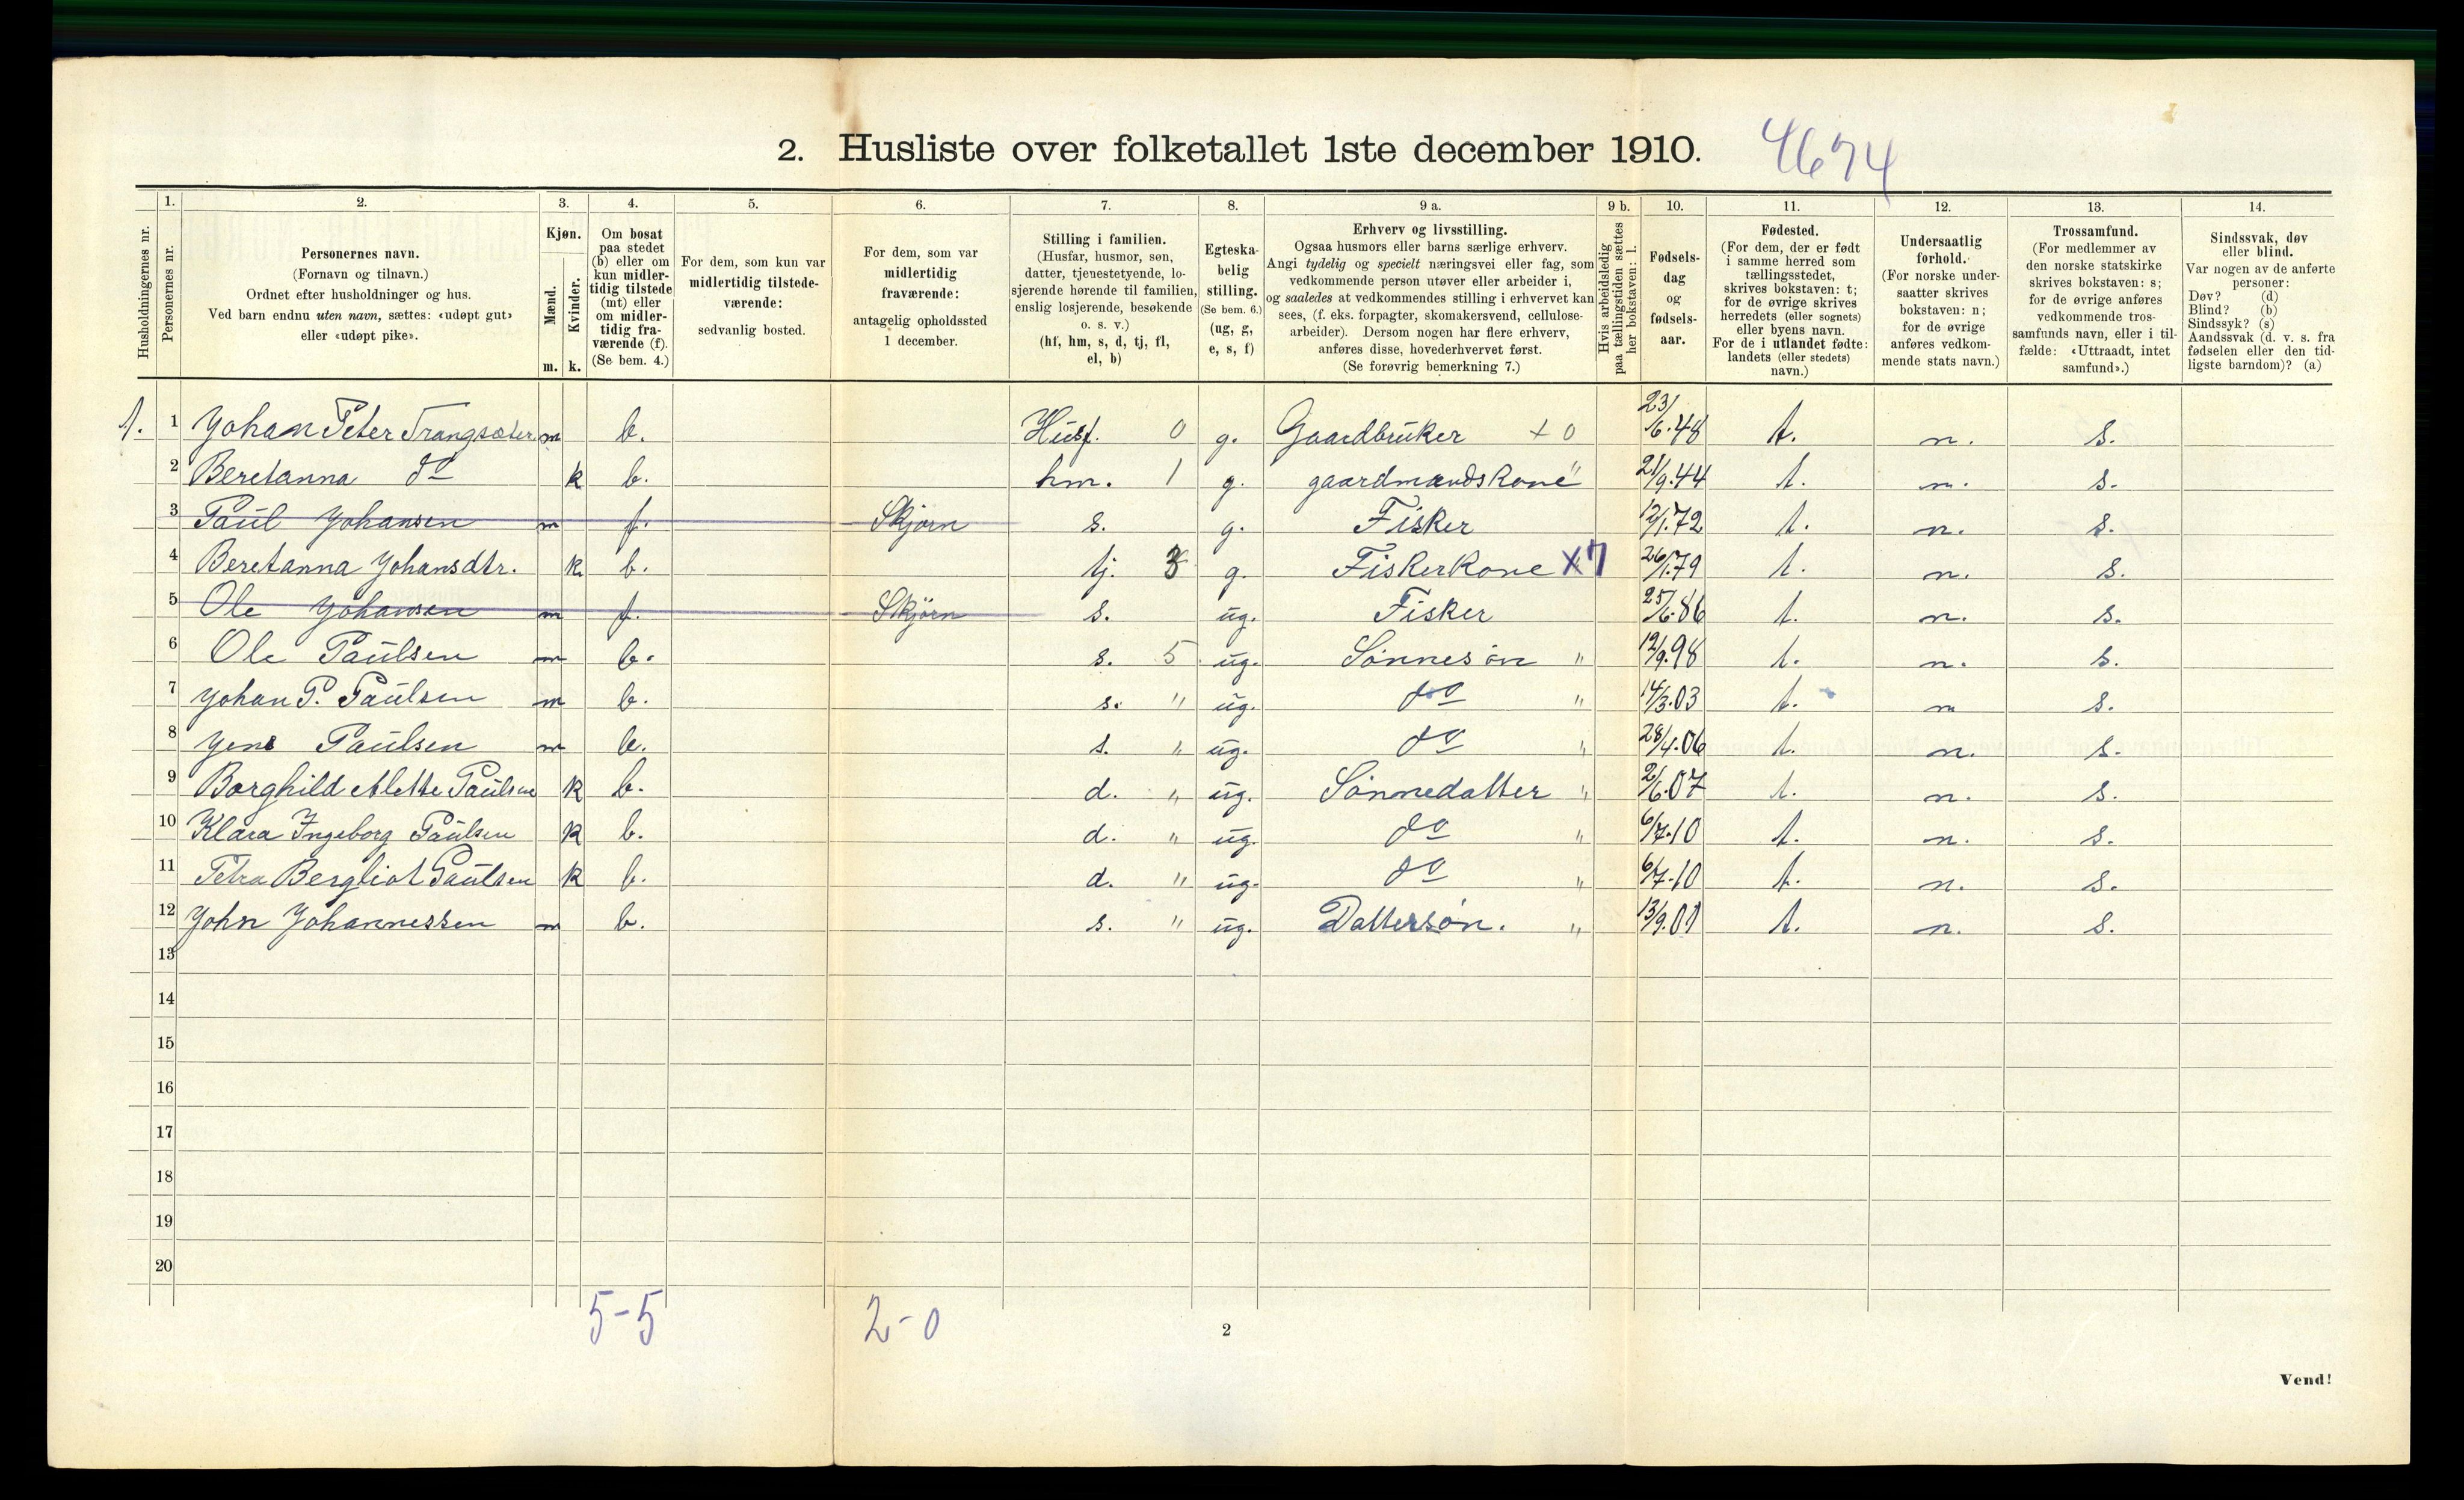 2. Husliste over folketallet 1ste december 1910. 4674
Husholdningernes nr.
1. Personernes nr.
2. Personernes navn. (Fornavn og tilnavn.) Ordnet efter husholdninger og hus. Ved barn endnu uten navn, sættes: «udøpt gut» eller «udøpt pike».
3. Kjøn. Mænd. m. Kvinder. k.
4. Om bosat paa stedet (b) eller om kun midlertidig tilstede (mt) eller om midlertidig fraværende (f). (Se bem. 4.)
5. For dem, som kun var midlertidig tilstedeværende: sedvanlig bosted.
6. For dem, som var midlertidig fraværende: antagelig opholdssted 1 december.
7. Stilling i familien. (Husfar, husmor, søn, datter, tjenestetyende, losjerende hørende til familien, enslig losjerende, besøkende o. s. v.) (hf, hm, s, d, tj, fl, el, b)
8. Egteskabelig stilling. (Se bem. 6.) (ug, g, e, s, f)
9 a. Erhverv og livsstilling. Ogsaa husmors eller barns særlige erhverv. Angi tydelig og specielt næringsvei eller fag, som vedkommende person utøver eller arbeider i, og saaledes at vedkommendes stilling i erhvervet kan sees, (f. eks. forpagter, skomakersvend, cellulosearbeider). Dersom nogen har flere erhverv, anføres disse, hovederhvervet først. (Se forøvrig bemerkning 7.)
9 b. Hvis arbeidsledig paa tællingstiden sættes her bokstaven: l.
10. Fødselsdag og fødselsaar.
11. Fødested. (For dem, der er født i samme herred som tællingsstedet, skrives bokstaven: t; for de øvrige skrives herredets (eller sognets) eller byens navn. For de i utlandet fødte: landets (eller stedets) navn.)
12. Undersaatlig forhold. (For norske undersaatter skrives bokstaven: n; for de øvrige anføres vedkommende stats navn.)
13. Trossamfund. (For medlemmer av den norske statskirke skrives bokstaven: s; for de øvrige anføres vedkommende trossamfunds navn, eller i tilfælde: «Uttraadt, intet samfund».)
14. Sindssvak, døv eller blind. Var nogen av de anførte personer: Døv? (d) Blind? (b) Sindssyk? (s) Aandssvak (d. v. s. fra fødselen eller den tidligste barndom)? (a)
1. 1 Johan Peter Trangsæter m b. Husf. 0 g. Gaardbruker + 0 23/6.48 t. n. s.
2 Beretanna do k b. hm. 1 g. gaardmandskone " 21/9.44 t. n. s.
3 Paul Johansen m f. Skjörn s. g. Fisker 12/1.72 t. n. s.
4 Beretanna Johansdtr. k. b. tj. 3 g. Fiskerkone X7 26/1.79 t. n. s.
5 Ole Johansen m f. Skjörn s. ug. Fisker 25/6.86 t. n. s.
6 Ole Paulsen m b. s. 5 ug. Sönnesön " 12/9.98 t. n. s.
7 Johan P. Paulsen m b. s. " ug. do " 14/3.03 t. n s.
8 Jens Paulsen m b. s. " ug. do " 28/4.06 t. n. s.
9 Borghild Alette Paulsen k b. d. " ug. Sönnedatter " 2/6.07 t. n. s.
10 Klara Ingeborg Paulsen k b. d. " ug. do " 6/7.10 t. n. s.
11 Petra Bergliot Paulsen k b. d. " ug. do " 6/7.10 t. n. s.
12 John Johannessen m b. s. " ug. Dattersön. " 13/9.01 t. n. s.
13
14
15
16
17
18
19
20
5-5 2-0
2
Vend!